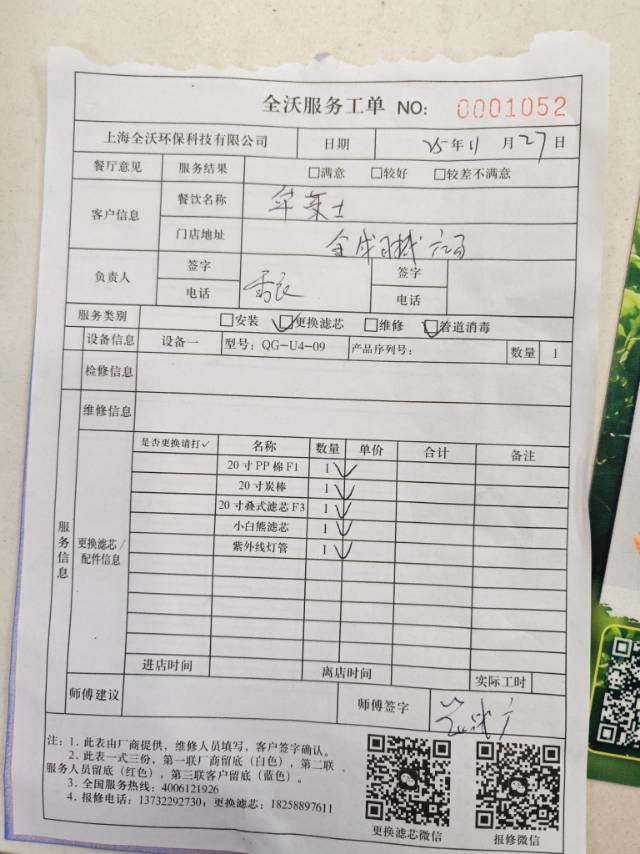 全沃服务工单 NO: 0001052
上海全沃环保科技有限公司 日期 25年11月27日
餐厅意见 服务结果 □满意 □较好 □较差不满意
客户信息 餐饮名称 华莱士
门店地址
负责人 签字 签字
电话 电话
服务类别 □安装 ☑更换滤芯 □维修 ☑管道消毒
设备信息 设备一 型号: QG-U4-09 产品序列号: 数量 1
检修信息
维修信息
服务信息
更换滤芯/配件信息
是否更换请打✓ 名称 数量 单价 合计 备注
20寸PP棉F1 1 ✓
20寸炭棒 1 ✓
20寸叠式滤芯F3 1 ✓
小白熊滤芯 1 ✓
紫外线灯管 1 ✓
进店时间 离店时间 实际工时
师傅建议 师傅签字
注: 1. 此表由厂商提供, 维修人员填写, 客户签字确认。
2. 此表一式三份, 第一联厂商留底(白色), 第二联
服务人员留底(红色), 第三联客户留底(蓝色)。
3. 全国服务热线: 4006121926
4. 报修电话: 13732292730, 更换滤芯: 18258897611
更换滤芯微信 报修微信